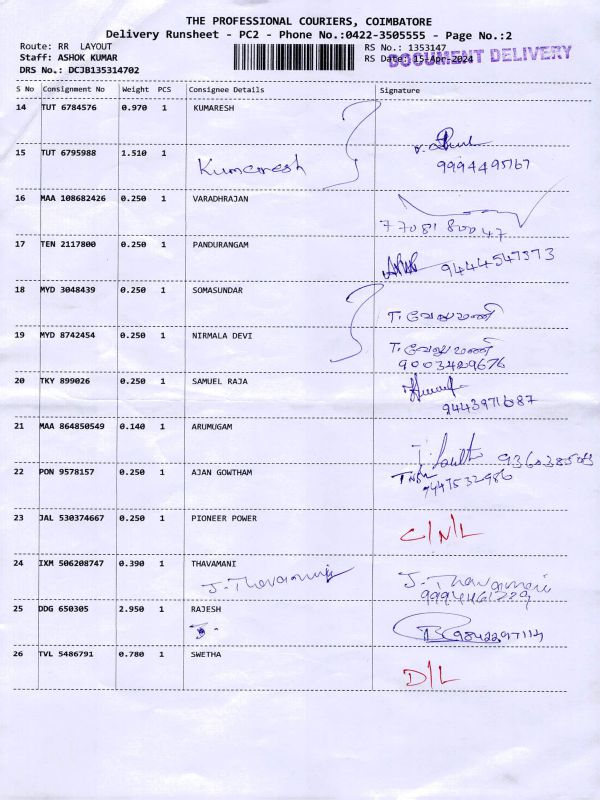 THE PROFESSIONAL COURIERS, COIMBATORE
Delivery Runsheet - PC2 - Phone No.:0422-3505555 - Page No.:2
Route: RR LAYOUT
Staff: ASHOK KUMAR
DRS No.: DCJB135314702
RS No.: 1353147
RS Date: 15-Apr-2024
DOCUMENT DELIVERY
S No Consignment No Weight PCS Consignee Details Signature
14 TUT 6784576 0.970 1 KUMARESH
15 TUT 6795988 1.510 1
Kumaresh
9994495767
16 MAA 108682426 0.250 1 VARADHRAJAN
77081 80047
17 TEN 2117800 0.250 1 PANDURANGAM
9444547373
18 MYD 3048439 0.250 1 SOMASUNDAR
T. வேலுமணி
19 MYD 8742454 0.250 1 NIRMALA DEVI
T. வேலுமணி
9003429676
20 TKY 899026 0.250 1 SAMUEL RAJA
21 MAA 864850549 0.140 1 ARUMUGAM
22 PON 9578157 0.250 1 AJAN GOWTHAM
23 JAL 530374667 0.250 1 PIONEER POWER
C/N/L
24 IXM 506208747 0.390 1 THAVAMANI
J. Thavamani J. Thavamani
9994461229
25 DDG 650305 2.950 1 RAJESH
26 TVL 5486791 0.780 1 SWETHA
D/L